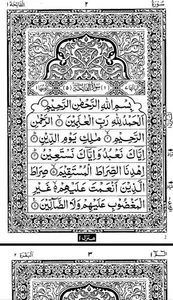 سورة ٢ الفاتحة
بِسْمِ اللهِ الرَّحْمٰنِ الرَّحِيْمِ
اَلْحَمْدُ لِلّٰهِ رَبِّ الْعٰلَمِيْنَ ۝ الرَّحْمٰنِ
الرَّحِيْمِ ۝ مٰلِكِ يَوْمِ الدِّيْنِ ۝
اِيَّاكَ نَعْبُدُ وَاِيَّاكَ نَسْتَعِيْنُ ۝
اِهْدِنَا الصِّرَاطَ الْمُسْتَقِيْمَ ۝ صِرَاطَ
الَّذِيْنَ اَنْعَمْتَ عَلَيْهِمْ ۙ غَيْرِ
الْمَغْضُوْبِ عَلَيْهِمْ وَلَا الضَّآلِّيْنَ ۝
منزل ١
البقرة ٢ ٣ الٓمّٓ ١